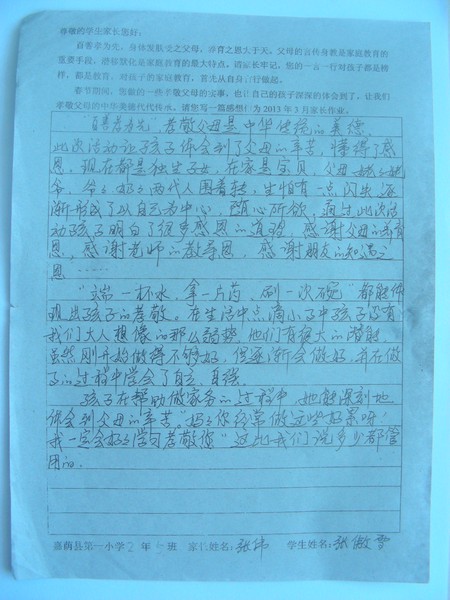 尊敬的学生家长您好：
百善孝为先，身体发肤受之父母，养育之恩大于天。父母的言传身教是家庭教育的
重要手段，潜移默化是家庭教育的最大特点。请家长牢记，您的一言一行对孩子都是榜
样，都是教育。对孩子的家庭教育，首先从自身言行做起。
春节期间，您做的一些孝敬父母的实事，也让自己的孩子深深的体会到了，让我们
孝敬父母的中华美德代代传承。请您写一篇感想作为2013年3月家长作业。
"百善孝为先"孝敬父母是中华传统的美德，
此次活动让孩子体会到了父母的辛苦，懂得了感
恩，现在都是独生子女，在家是宝贝，父母姥姥姥
爷、爷爷奶奶两代人围着转，生怕有一点闪失，逐
渐形成了以自己为中心，随心所欲，通过此次活
动孩子明白了很多感恩的道理，感谢父母的养育
恩，感谢老师的教导恩，感谢朋友的知遇之
恩……
"端一杯水，拿一片药，刷一次碗"都能体
现出孩子的孝敬。在生活中点滴小事中孩子没有
我们大人想像的那么弱势，他们有很大的潜能，
虽然刚开始做得不够好，但逐渐会做好，并在做
的过程中学会了自立、自强。
孩子在帮助做家务的过程中，她能深刻地
体会到父母的辛苦。"妈妈你经常做这些好累呀！
我一定会好好学习孝敬您"这比我们说多少都管
用的。
嘉荫县第一小学2年 班 家长姓名：张伟 学生姓名：张傲雪